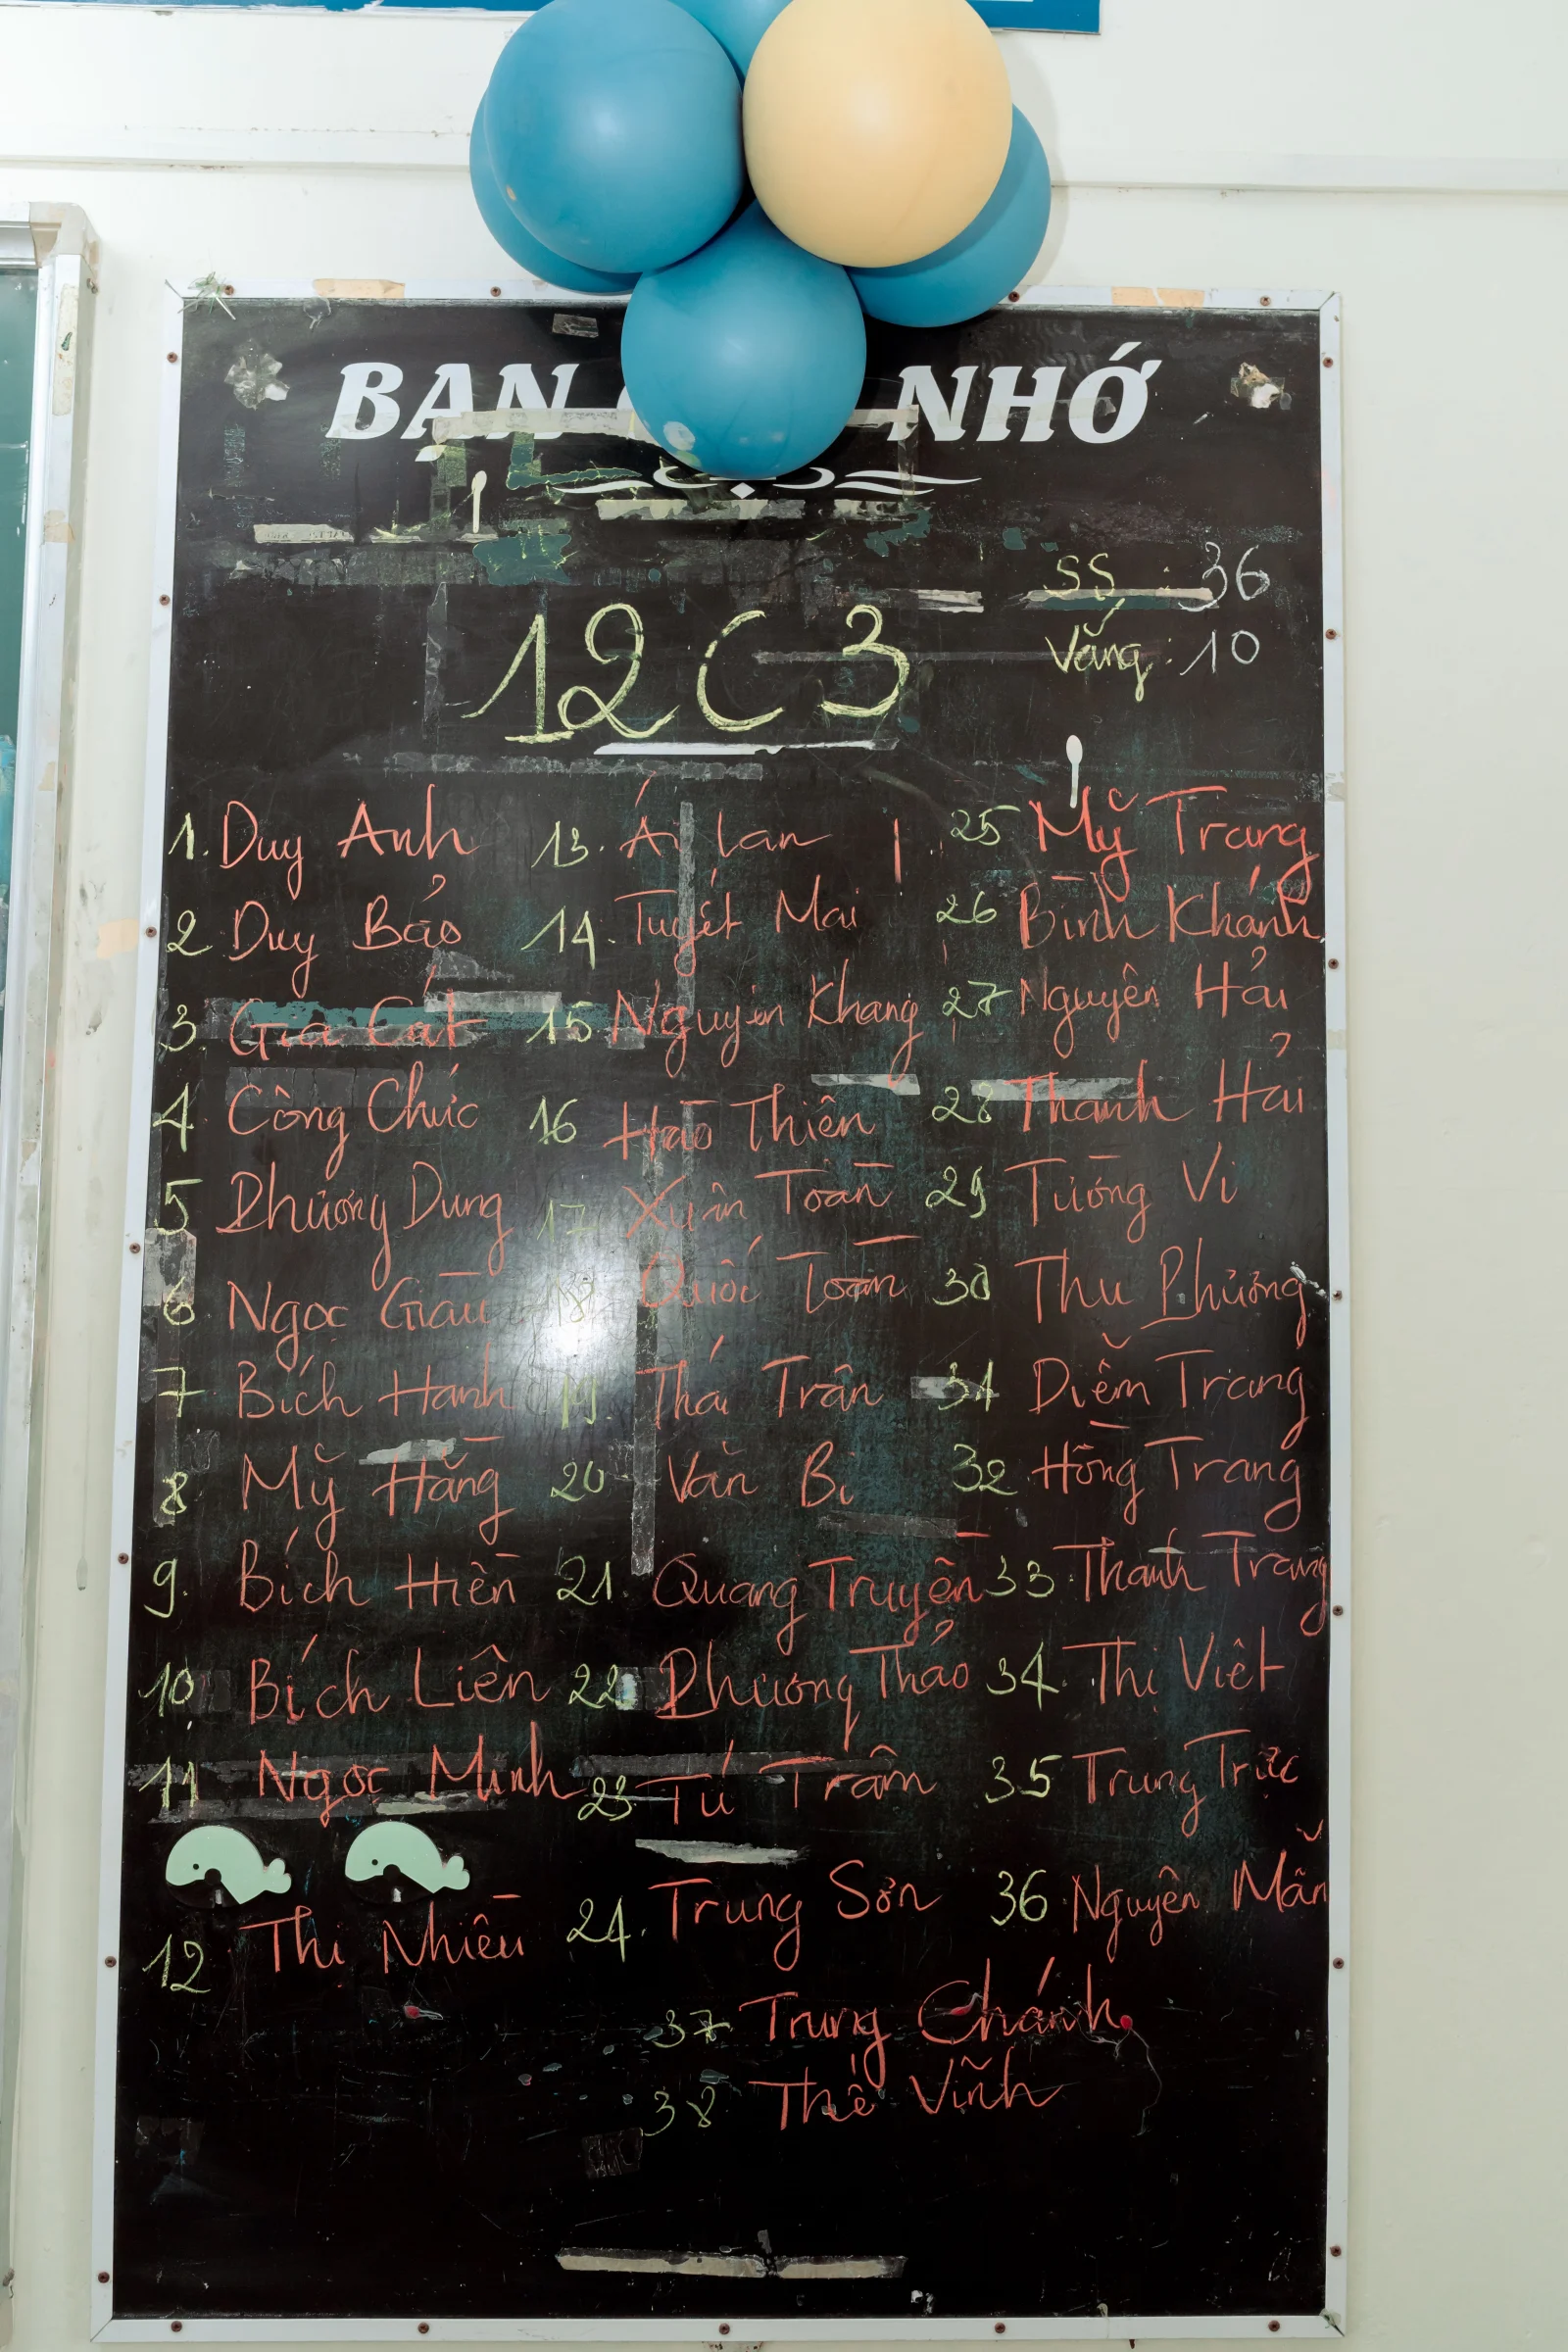 BẠN NHỚ
SS : 36
Vắng : 10
12C3
1. Duy Anh
2 Duy Bảo
3 Gia Cát
4 Công Chức
5 Phương Dung
6 Ngọc Giàu
7 Bích Hạnh
8 Mỹ Hằng
9. Bích Hiền
10 Bích Liên
11 Ngọc Minh
12 Thị Nhiều
13. Ái Lan
14. Tuyết Mai
15 Nguyên Khang
16 Hào Thiên
17 Xuân Toàn
18 Quốc Toàn
19. Thái Trân
20 Văn Bi
21. Quang Truyền
22 Phương Thảo
23 Tú Trâm
24. Trung Sơn
25 Mỹ Trang
26 Bình Khánh
27 Nguyên Hải
28 Thanh Hải
29 Tường Vi
30 Thu Phương
31 Diễm Trang
32 Hồng Trang
33 Thanh Trang
34. Thị Việt
35 Trung Trực
36 Nguyên Mẫn
37 Trung Chánh
38 Thế Vĩnh